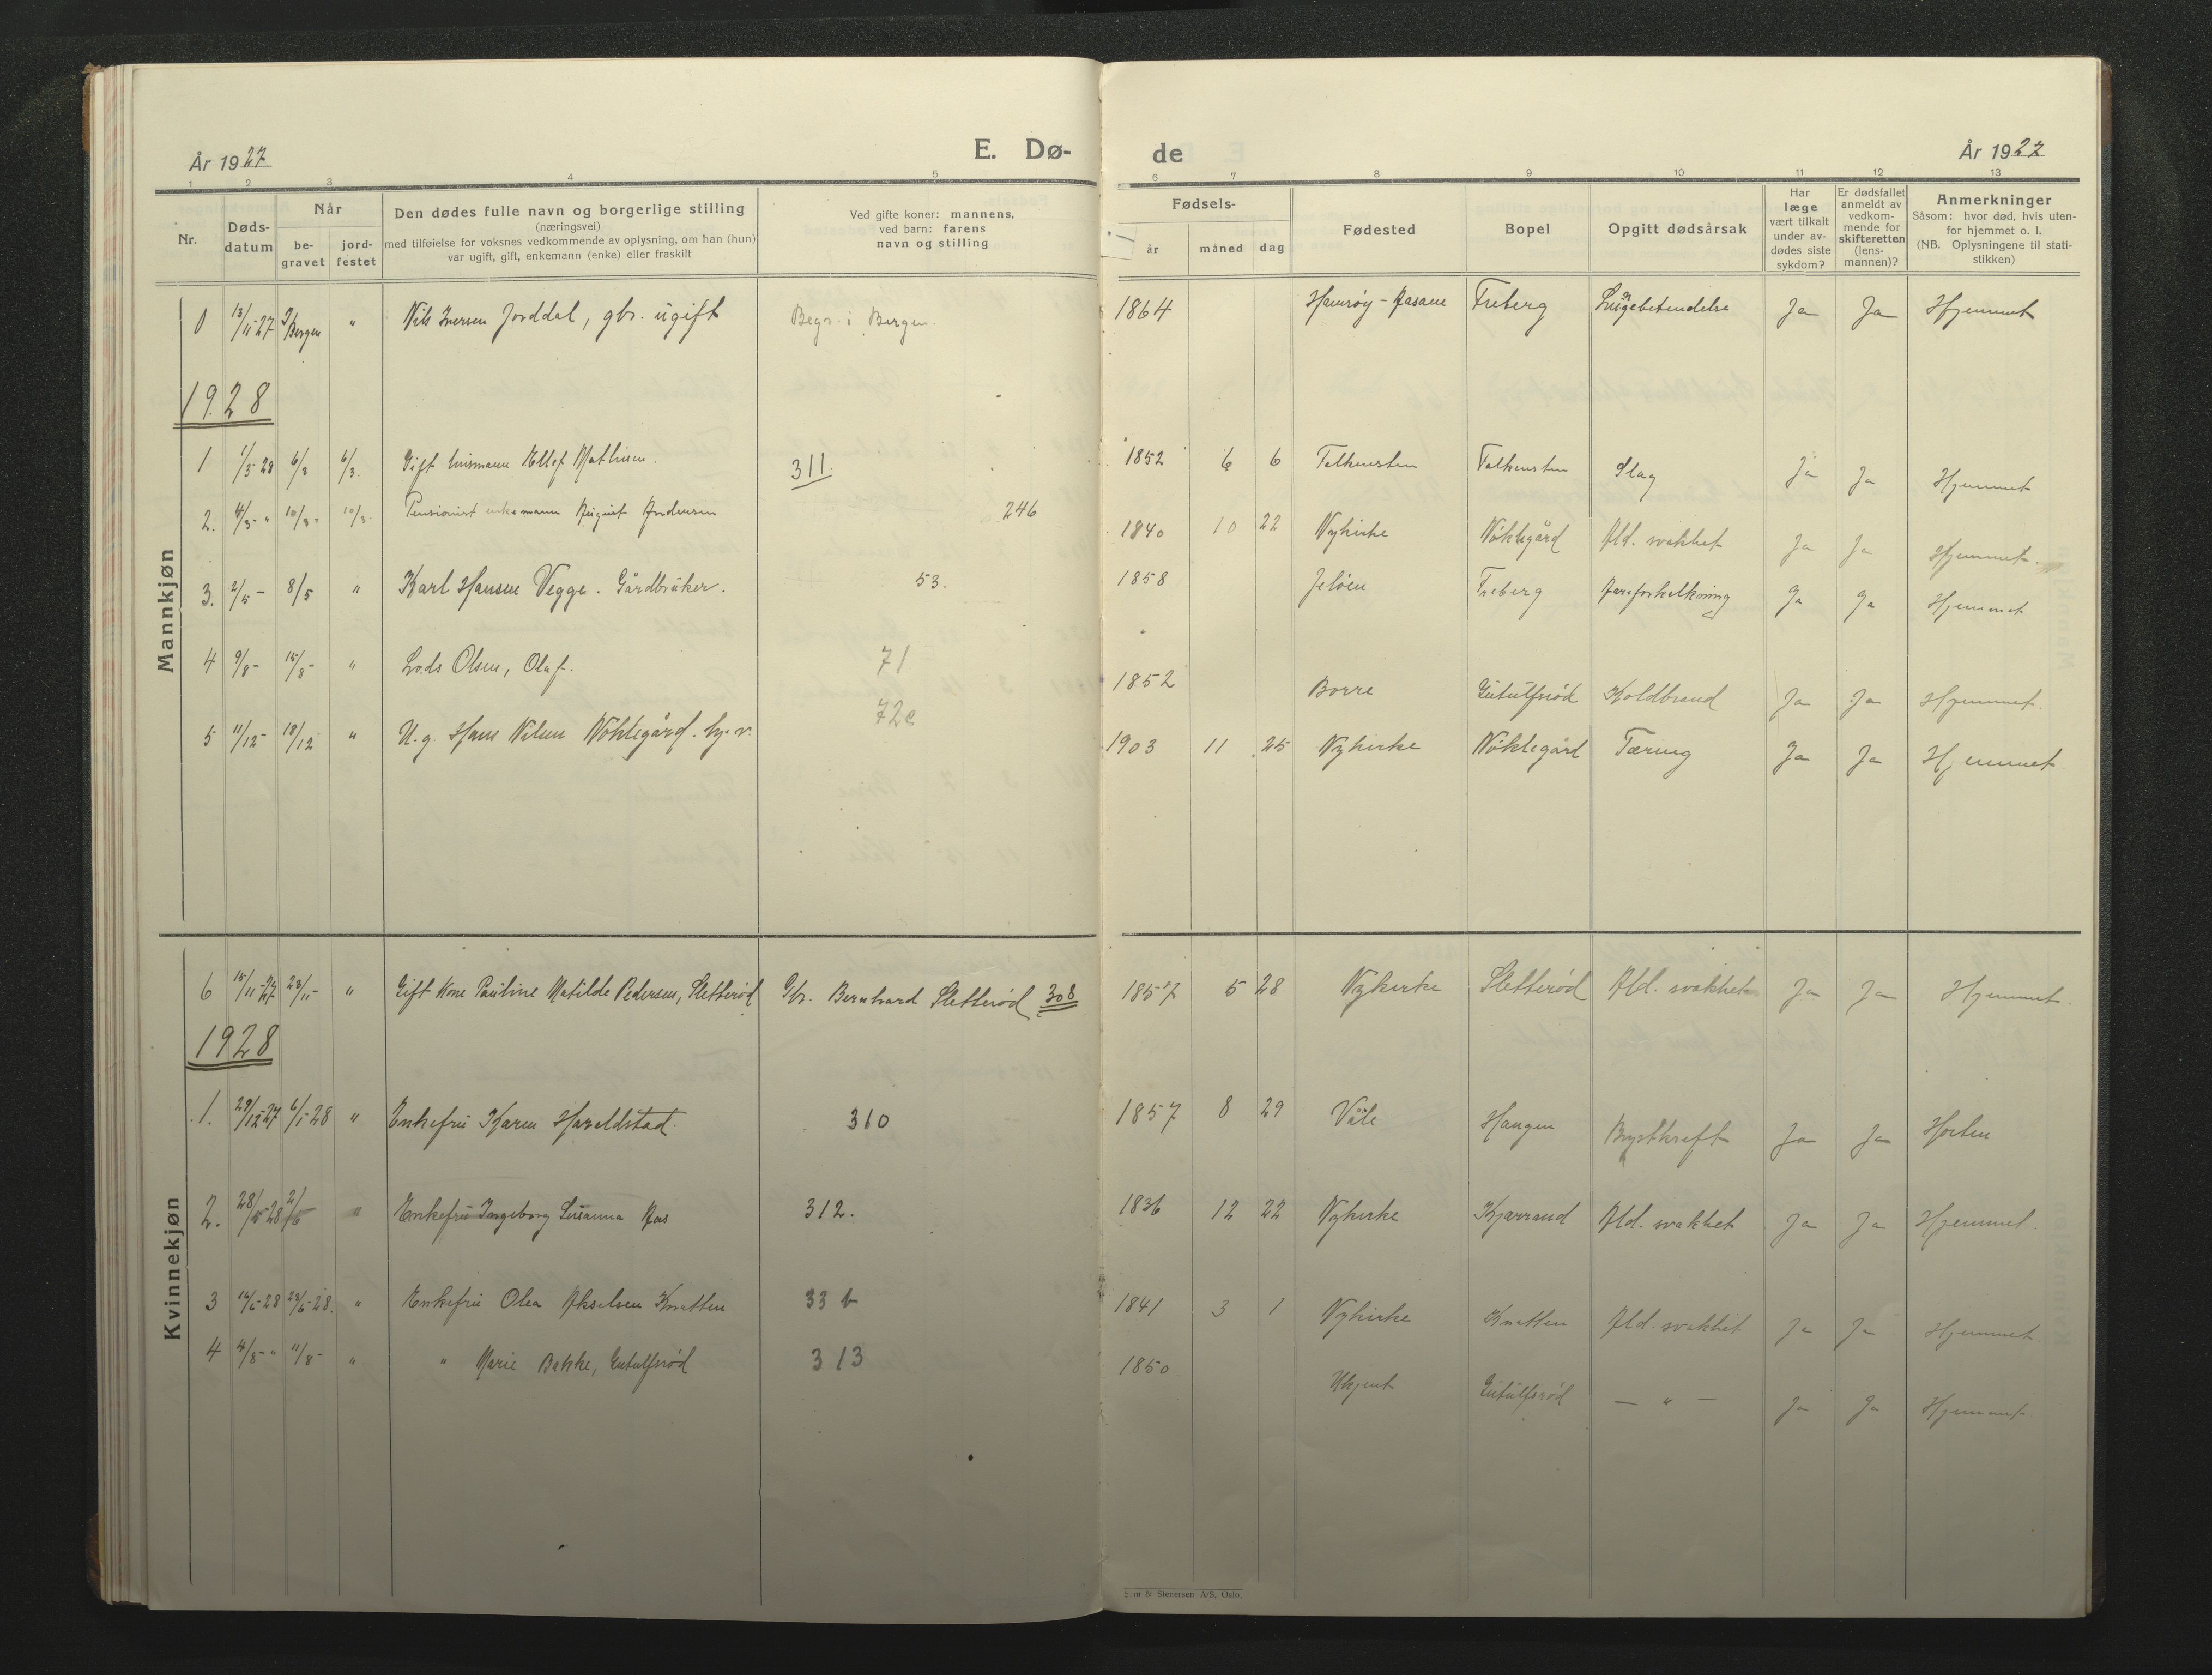 År 1927
E. Dø-
de
År 1927
1 2 3 4 5 6 7 8 9 10 11 12 13
Nr.
Døds-
datum
Når
be-
gravet
jord-
festet
Den dødes fulle navn og borgerlige stilling
(næringsvei)
med tilføielse for voksnes vedkommende av oplysning, om han (hun)
var ugift, gift, enkemann (enke) eller fraskilt
Ved gifte koner: mannens,
ved barn: farens
navn og stilling
Fødsels-
år måned dag
Fødested
Bopel
Opgitt dødsårsak
Har
læge
vært tilkalt
under av-
dødes siste
sykdom?
Er dødsfallet
anmeldt av
vedkom-
mende for
skifteretten
(lens-
mannen)?
Anmerkninger
Såsom: hvor død, hvis uten-
for hjemmet o. l.
(NB. Oplysningene til stati-
stikken)
Mannkjøn
0 13/11-27 I Bergen " Nils Iversen Jorddal, gbr. ugift Begr. i Bergen. 1864 Hamrøy - Aasane Freberg Lungebetendelse Ja Ja Hjemmet
1928
1 1/3-28 6/3 6/3. Gift husmann Ellef Mathisen. 311. 1852 6 6 Falkensten Falkensten Slag Ja Ja Hjemmet
2. 4/3- " 10/3- 10/3- Pensionist enkemann August Andersen 246 1840 10 22 Nykirke Nøklegård Ald. svakhet Ja Ja Hjemmet.
3. 2/5- 8/5 " Karl Hansen Vegge. Gårdbruker. 53. 1858 Jeløen Freberg Aareforkalkning Ja Ja Hjemmet
4 9/8- 15/8- " Lods Olsen, Olaf. 71 1852 Borre Gutulfsrød Koldbrand Ja Ja Hjemmet.
5 11/12- 18/12 " U.g. Hans Nilsen Nøklegård. 72c 1903 11 25 Nykirke Nøklegård Tæring Ja Ja Hjemmet
Kvinnekjøn
6 15/11-27 23/11- " Gift Kone Pauline Matilde Pedersen, Sletterød Gbr. Bernhard Sletterød 308 1857 5 28 Nykirke Sletterød Ald. svakhet Ja Ja Hjemmet.
1928
1. 29/12-27 6/1-28 " Enkefru Karen Haraldstad. 310 1857 8 29 Våle Haugen Brystkreft Ja Ja Horten
2. 28/5-28 " Enkefru Ingeborg Susanna Aas 312. 1836 12 22 Nykirke Kjærrand Ald. svakhet Ja Ja Hjemmet.
3 16/6-28 23/6-28. " Enkefru Olea Akselsen Knatten 33 b 1841 3 1 Nykirke Knatten Ald. svakhet Ja Ja Hjemmet.
4 4/8- " 11/8- " " Marie Bakke, Gutulfsrød 313 1850 Ukjent Gutulfsrød — " — Ja Ja Hjemmet
& Stenersen A/S, Oslo.